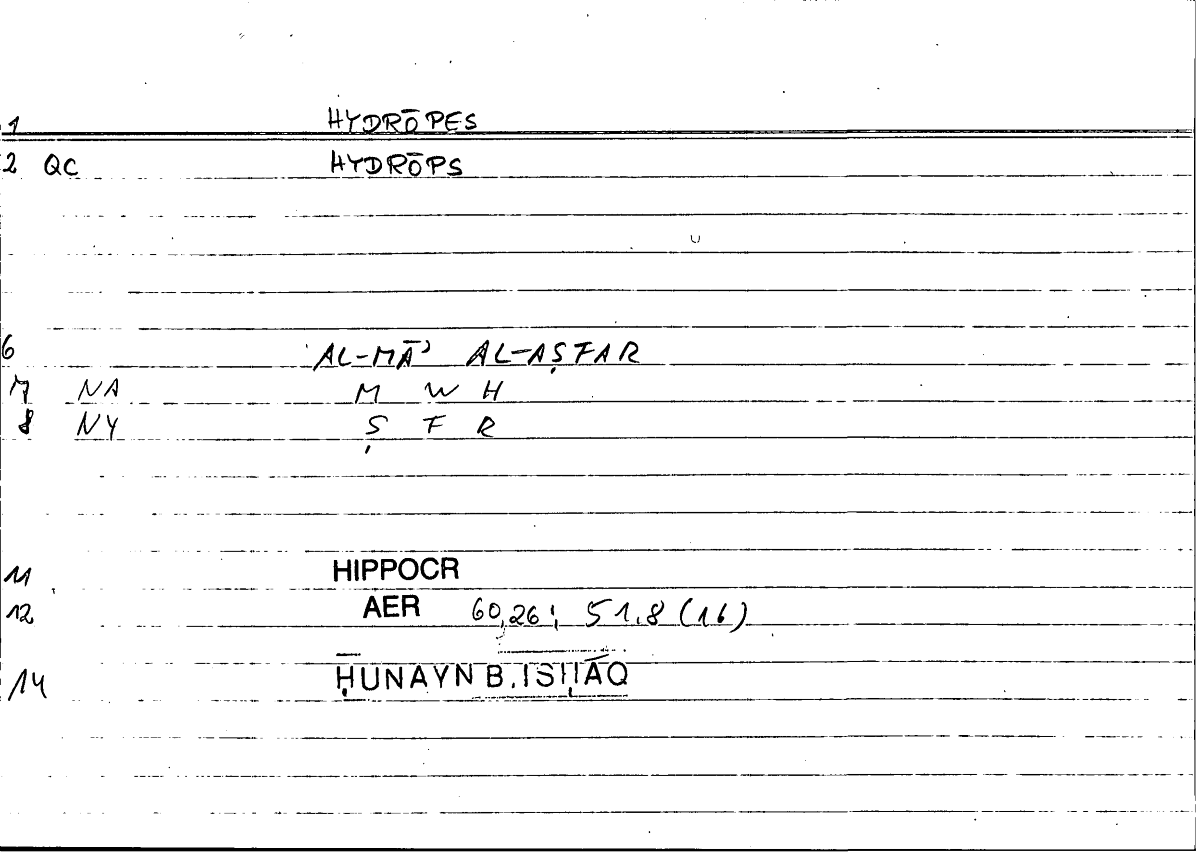 1 HYDRŌPES
2 QC HYDRŌPS
6 AL-MĀʾ AL-AṢFAR
7 NA M W H
8 NY Ṣ F R
11 HIPPOCR
12 AER 60,26; 51.8 (16)
14 ḤUNAYN B. ISḤĀQ